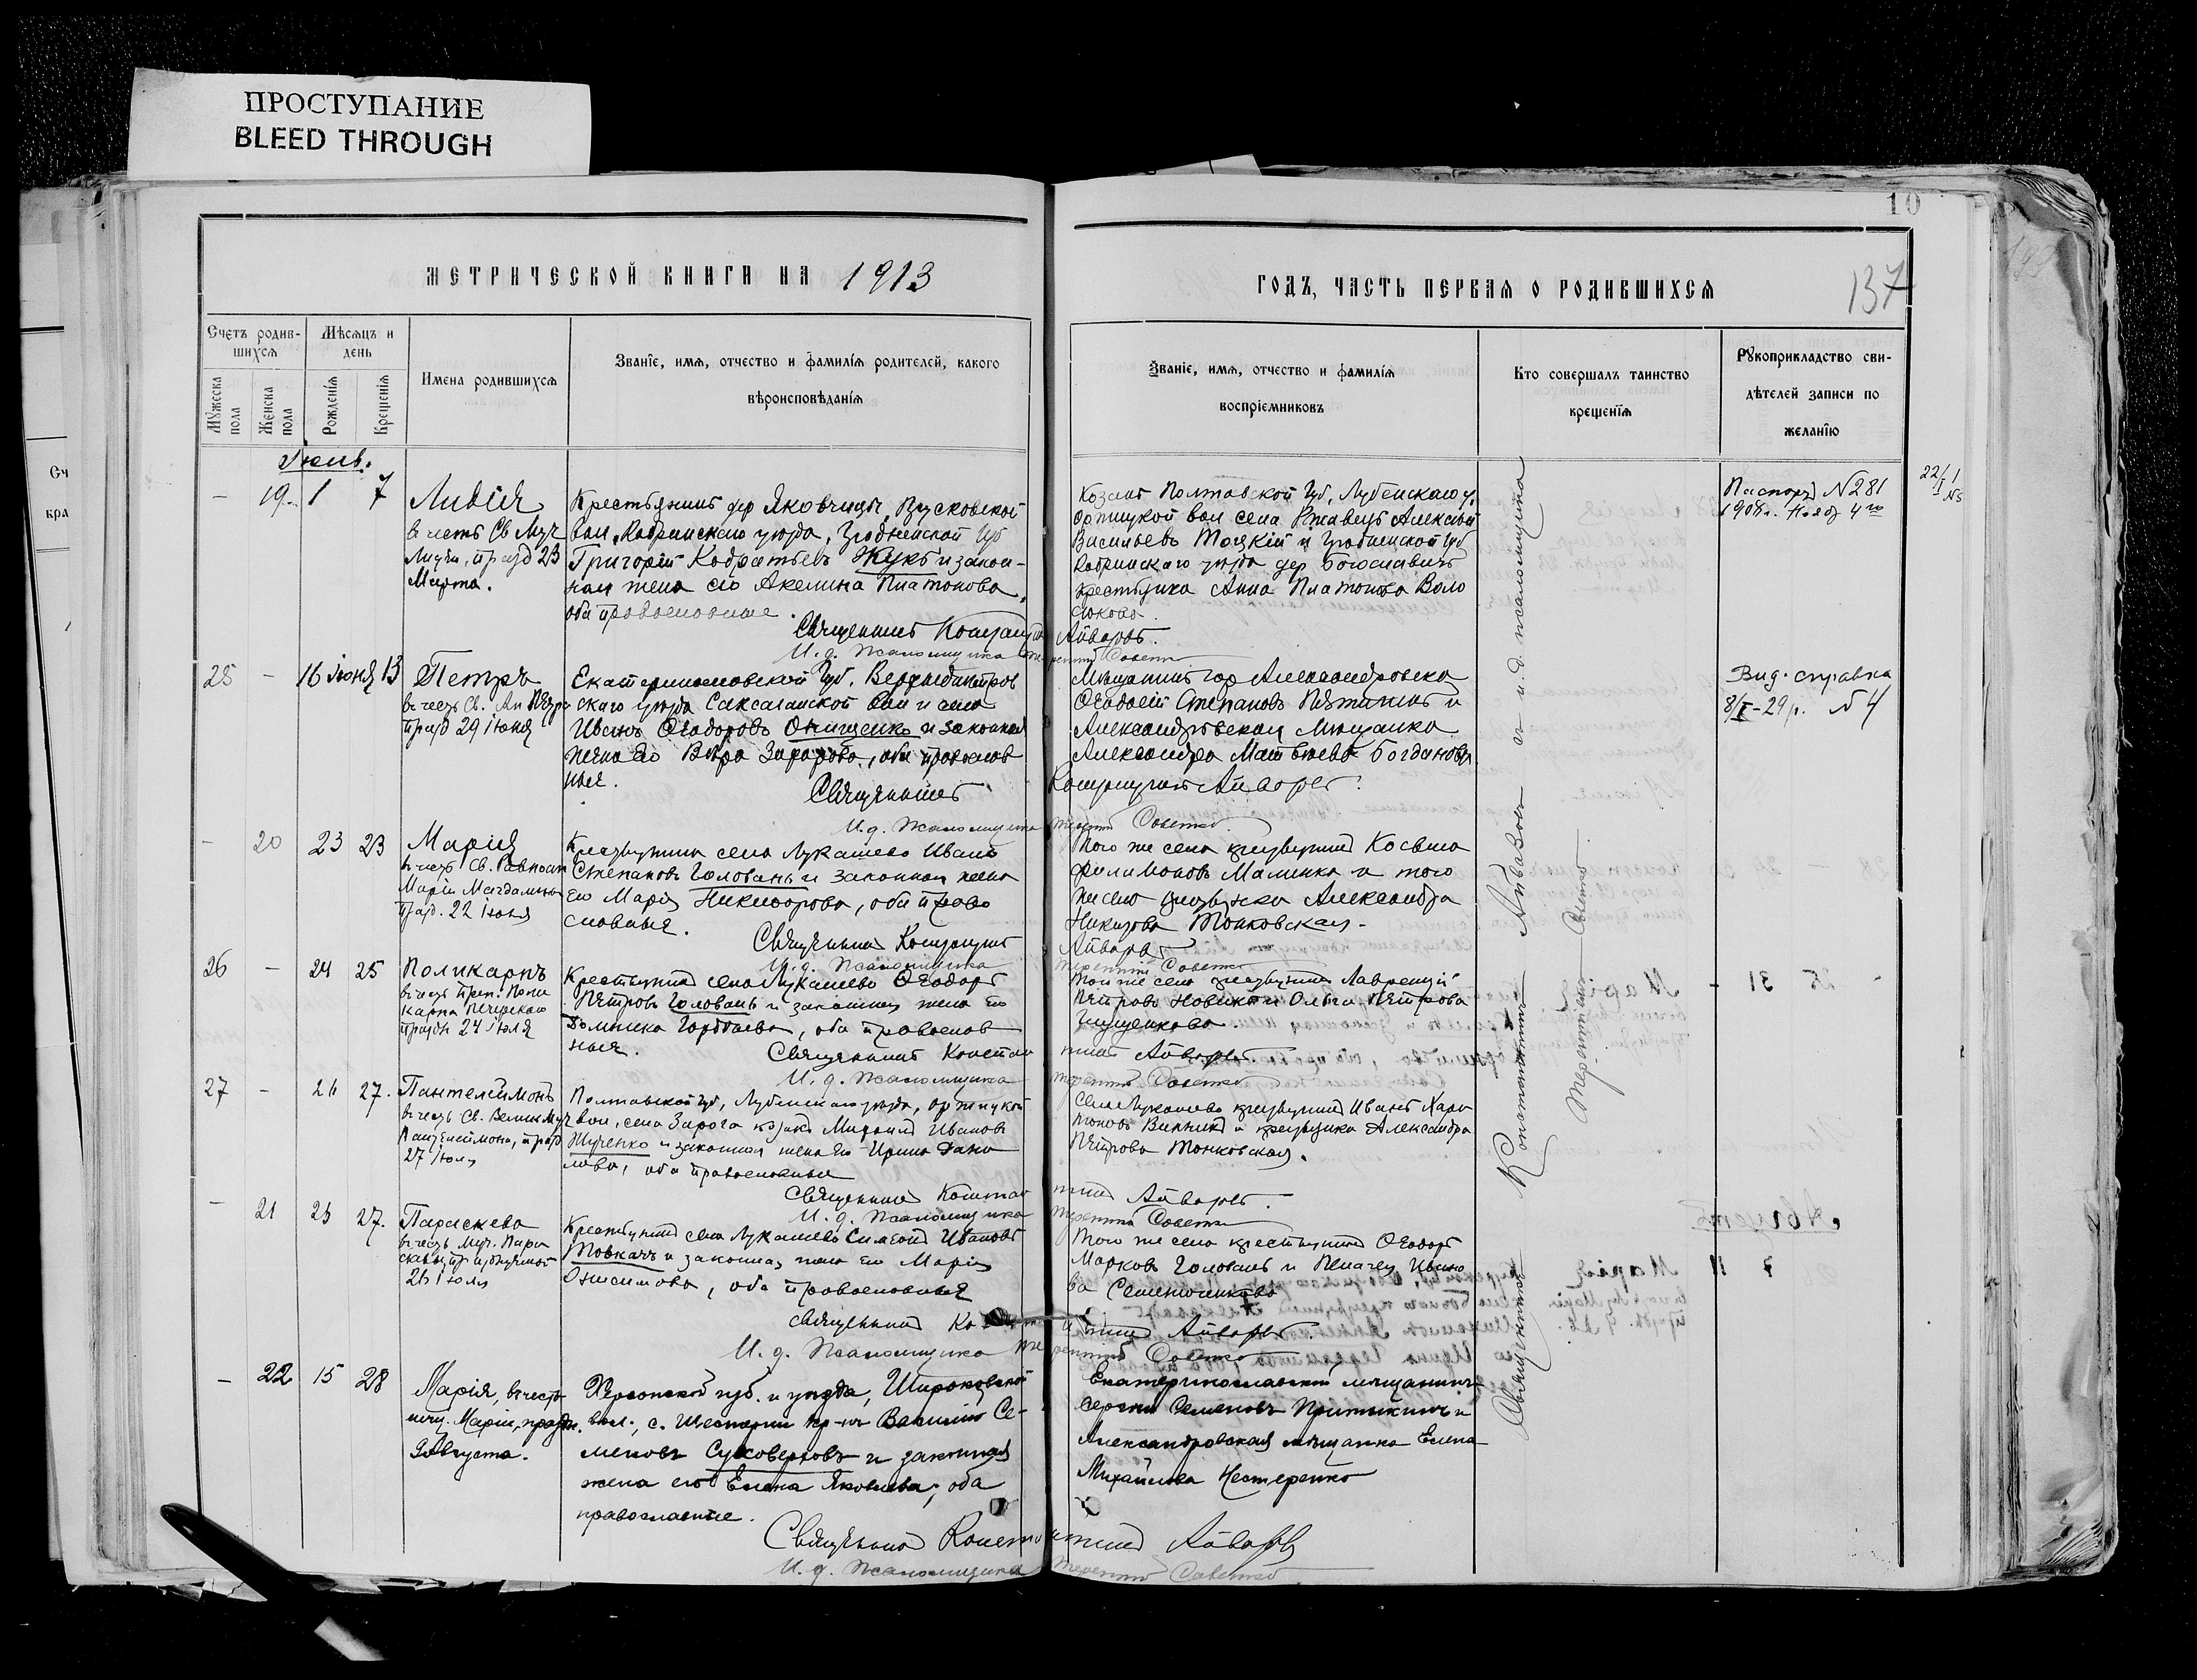 ПРОСТУПАНИЕ
BLEED THROUGH
10
137
МЕТРИЧЕСКОЙ КНИГИ НА 1913
ГОДЪ, ЧАСТЬ ПЕРВАЯ О РОДИВШИХСЯ
Счетъ родив-
шихся
Мѣсяцъ и
день
Мужеска
пола
Женска
пола
Рожденія
Крещенія
Имена родившихся
Званїе, имя, отчество и фамилїя родителей, какого
вѣроисповѣданїя
Званіе, имя, отчество и фамилїя
воспрїемниковъ
Кто совершалъ таинство
крещенїя
Рукоприкладство сви-
дѣтелей записи по
желанїю
Іюль.
— 19 1 7
Лидія
въ честь Св Муч
Лидіи, празд 23
Марта.
Крестьянинъ дер Яковчицъ,
вол, Кобринскаго уѣзда, Гродненской Губ
Григорій Кодратьевъ Жукъ и закон-
ная жена его Акелина Платонова,
оба православные.
Священникъ
И. д. Псаломщика
Козакъ Полтавской Губ, Лубенскаго у,
Оржицкой вол села Ржавецъ Алексѣй
Васильевъ Тоцкій и Гродненской Губ
Кобринскаго уѣзда дер Богославичъ
крестьянка Анна Платонова Воло
сюкова.
Айваровъ.
Паспортъ №281
1908г. Нояб 4го
22/I
№5
25 — 16 Іюня 13
Петръ
въ честь Св. Ап Петра
празд 29 Іюня
Екатеринославской Губ. Верхнеднѣпров
скаго уѣзда Саксаганской вол и села
Иванъ Ѳеодоровъ Онищенко и законная
жена его Вѣра Захарова, оба православ
ные.
Священникъ
И. д. Псаломщика
Мѣщанинъ гор Александровска
Ѳеодосій Степановъ Пятикинъ и
Александровская мѣщанка
Александра Матвѣева Богданова
Константинъ Айваровъ.
Вид. справка
8/I-29 р. №4
— 20 23 23
Марія
въ честь Св. Равноап
Маріи Магдалины
празд. 22 Іюля
Крестьянинъ села Лукашево Иванъ
Степановъ Головань и законная жена
его Марія Никифорова, оба право
славные.
Священникъ Константинъ
И. д. Псаломщика
Того же села крестьянинъ Косьма
Филимоновъ Малинка и того
же села крестьянка Александра
Тонковская.
Айваровъ
26 — 24 25
Поликарпъ
въ честь Преп. Поли
карпа Печерскаго
празд 24 Іюля
Крестьянинъ села Лукашево Ѳеодоръ
Петровъ Головань и законная жена его
Домника Горбаева, оба православ
ные.
Священникъ Констан
И. д. Псаломщика
Того же села крестьянинъ Лаврентій
Петровъ Новикъ и Ольга Петрова
тинъ Айваровъ
27 — 26 27.
Пантелеймонъ
въ честь Св. Велик Муч
Пантелеймона, празд
27 Іюля
Полтавской Губ, Лубенскаго уѣзда, Оржицкой
вол, села Зарога козакъ Михаилъ Ивановъ
и законная жена его Ирина Дани
лова, оба православные
Священникъ Констан
И. д. Псаломщика
Села Лукашево крестьянинъ Иванъ Хари
тоновъ Винникъ и крестьянка Александра
Петрова Тонковская.
тинъ Айваровъ.
— 21 25 27.
Параскева
въ честь Муч. Пара
скевы, празд
26 Іюля
Крестьянинъ села Лукашево Симеонъ Ивановъ
Товкачъ и законная жена его Марія
Онисимова, оба православные
Священникъ
И. д. Псаломщика
Того же села крестьянинъ Ѳеодоръ
Марковъ Головань и Пелагея Ивано
ва Семенченкова
тинъ Айваровъ.
— 22 15 28
Марія, въ честь
муч. Маріи, праздн.
9 Августа.
Херсонской губ. и уѣзда, Широковской
вол., с. Шестерни кр-нъ Василій Се-
меновъ Суховерховъ и законная
жена его Елена Яковлева, оба
православные.
Священникъ Констан
И. д. Псаломщика
Екатеринославскій мѣщанинъ
Сергѣй Семеновъ Притыкинъ и
Александровская мѣщанка Елена
Михайлова Нестеренко
тинъ Айваровъ
Священникъ Константинъ Айваровъ и и.д. псаломщика
Терентій Советко